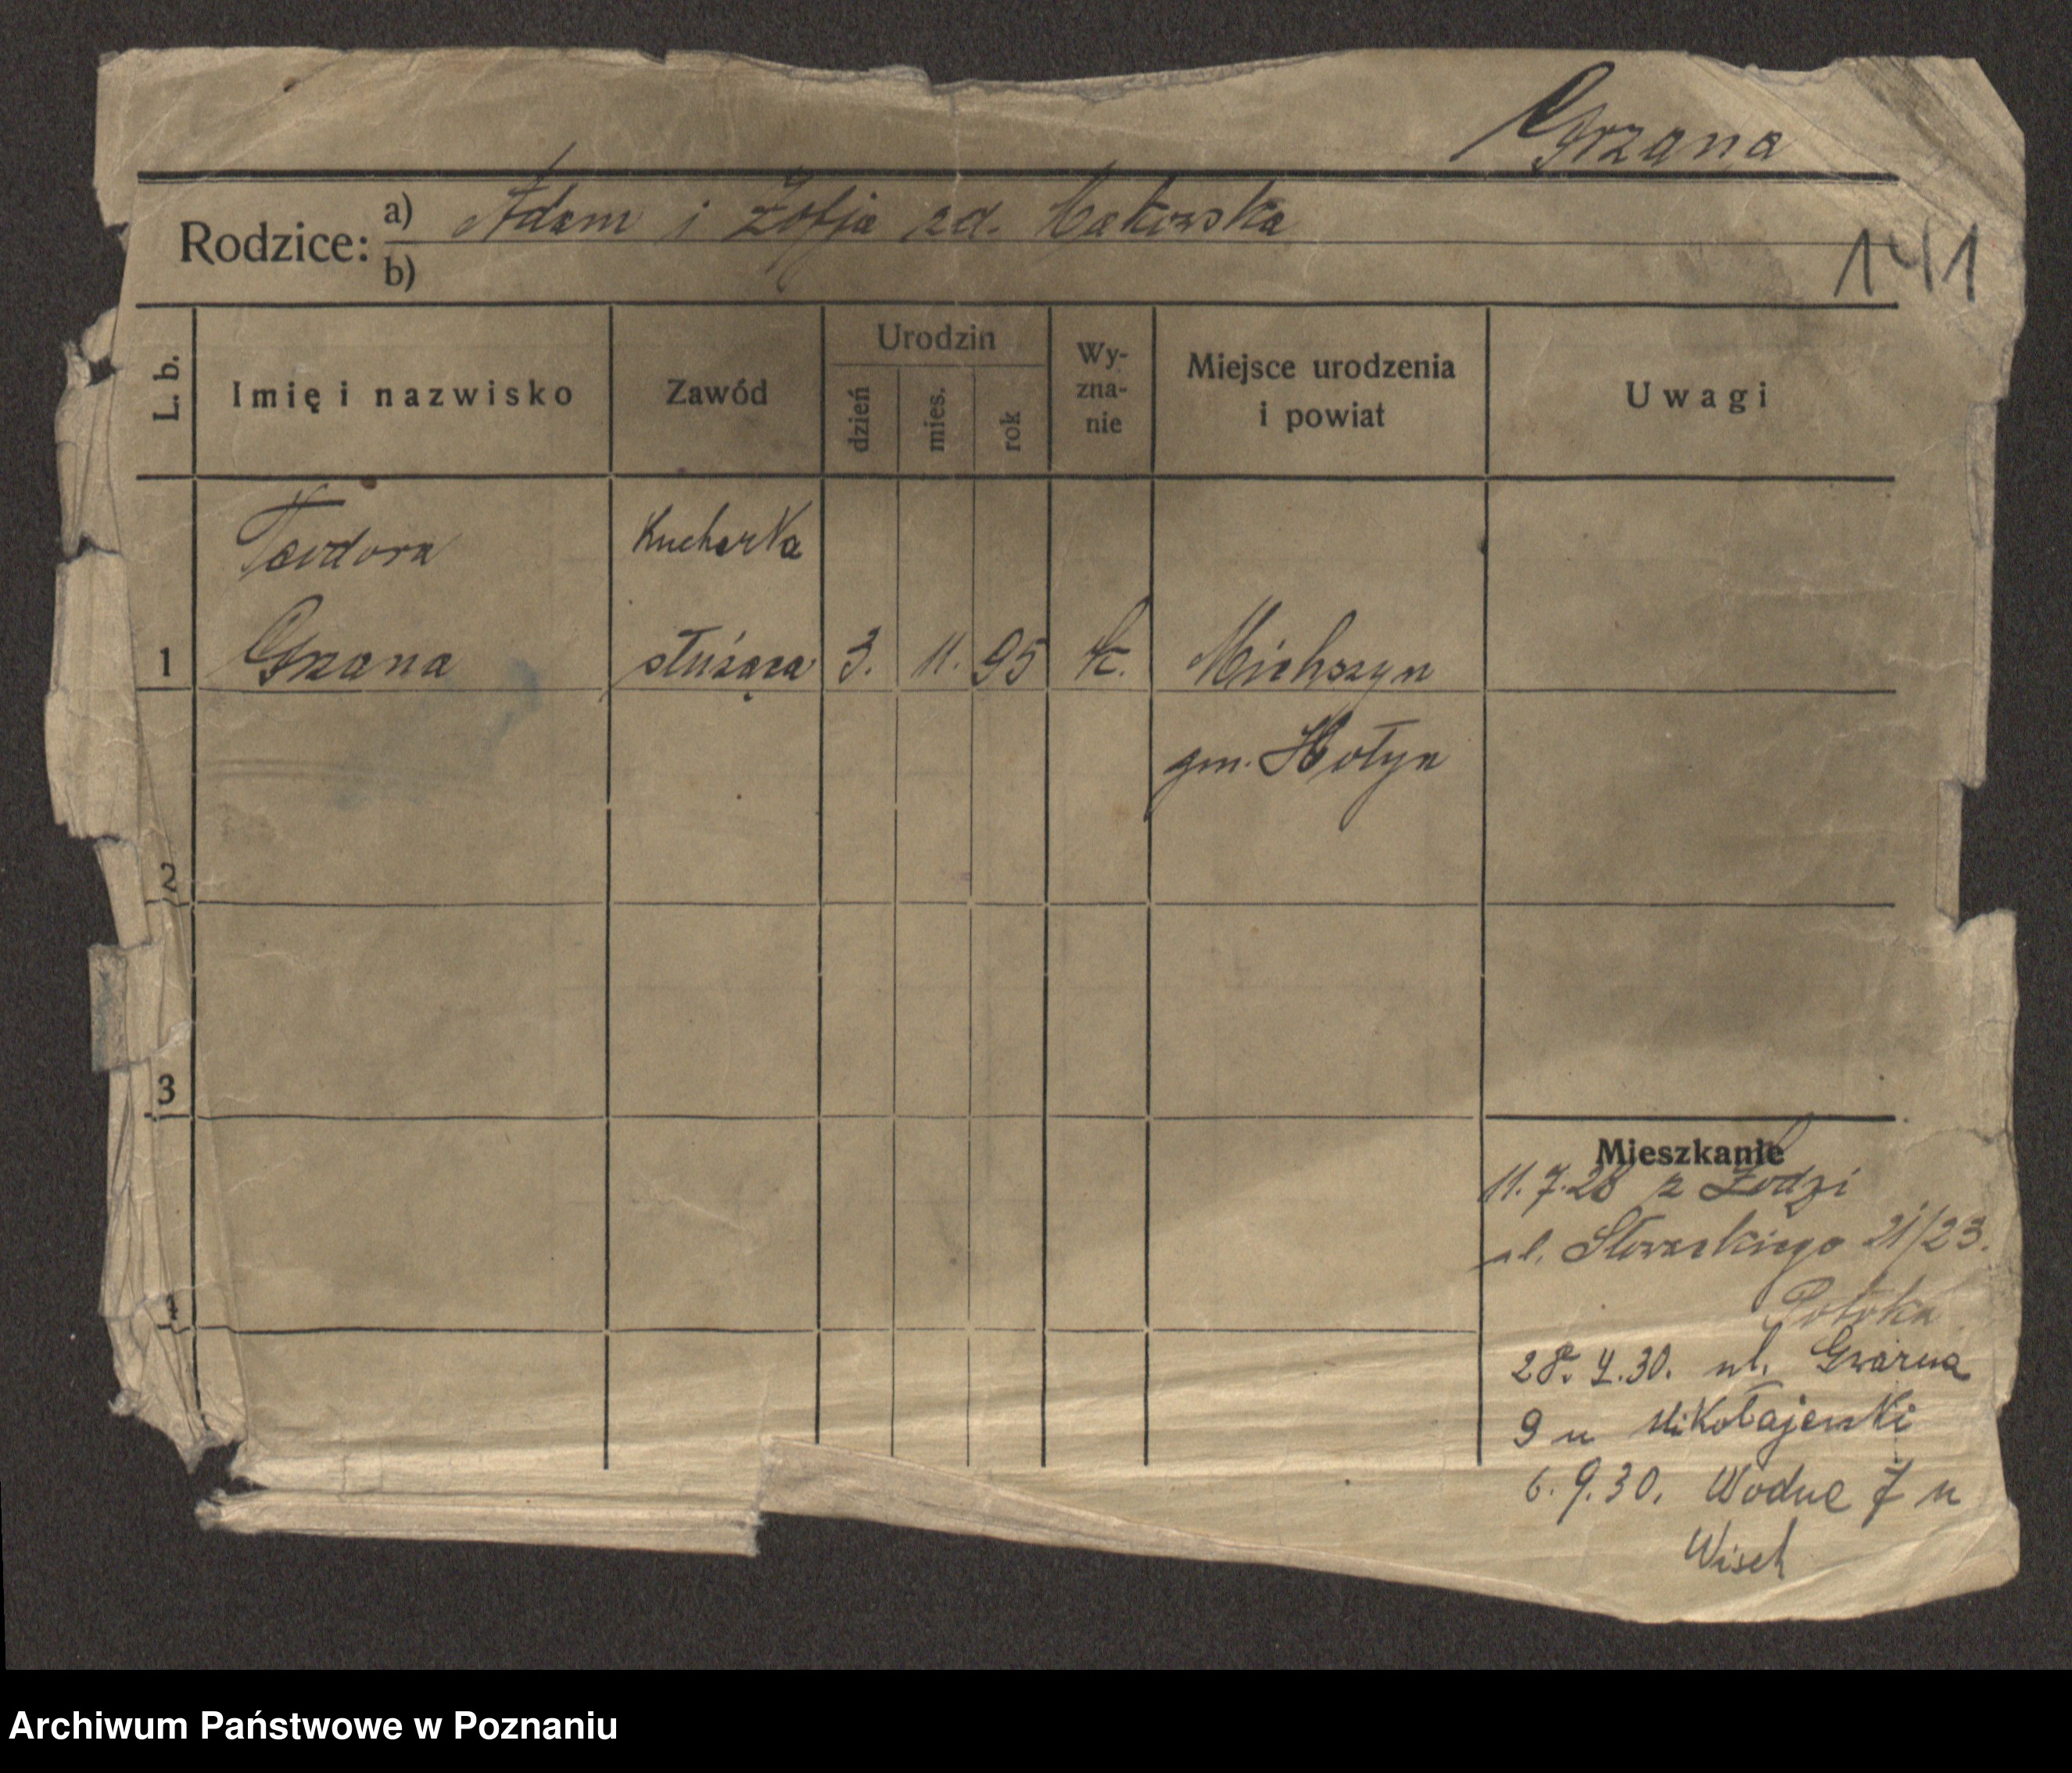 Grzana
Rodzice: a) Adam i Zofja zd. Makowska
b)
141
L. b. Imię i nazwisko Zawód Urodzin dzień mies. rok Wyznanie Miejsce urodzenia i powiat Uwagi
Teodora Kucharka
1 Grzana służąca 3. 11. 95 k.
gm.
2
3
4
Mieszkanie
11.7.28 z Łodzi
ul. Słowackiego 21/23.
28. 4.30. ul. Gwarna
9 u Mikołajewski
6. 9.30. Wodne 7 u